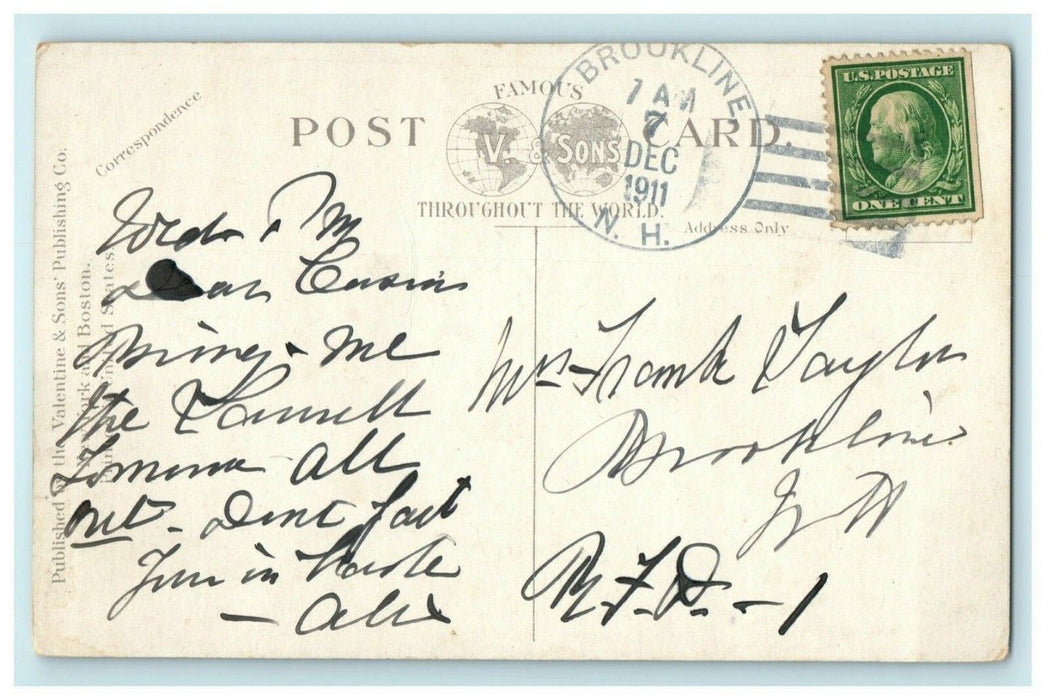 Correspondence
POST CARD.
FAMOUS
V. & SONS
THROUGHOUT THE WORLD.
Address Only
BROOKLINE
7 AM
7
DEC
1911
N. H.
U.S. POSTAGE
ONE CENT
Published by the Valentine & Sons' Publishing Co.
New York and Boston.
Printed in United States
Wed. P M
Dear Cousin
Bring me
the
all
out. Dont fail
in haste
Mrs Frank Taylor
Brookline
N H
R. F. D. - 1